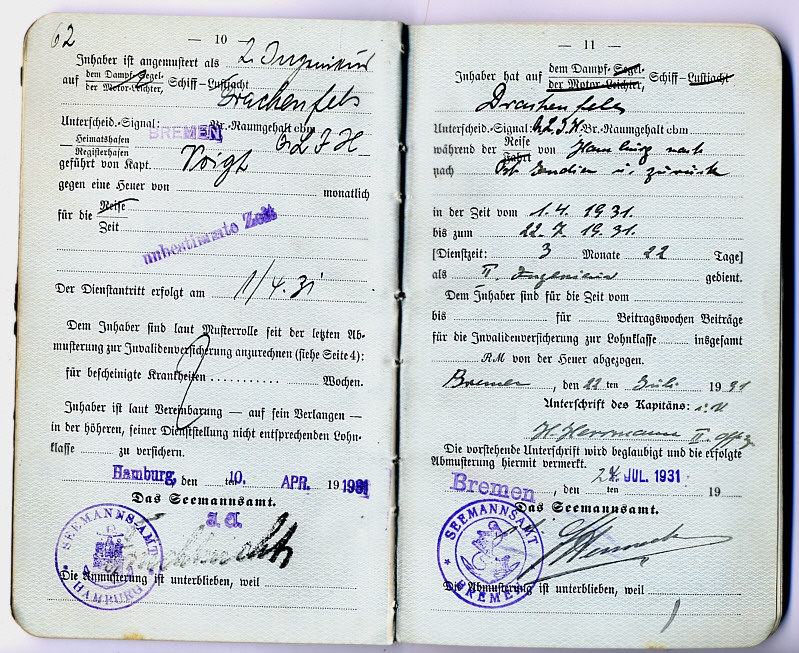 62
— 10 —
Inhaber ist angemustert als 2. Ingenieur
auf dem Dampf-Segel- Schiff-Lustjacht
der Motor-Leichter,
Drachenfels
Unterscheid.-Signal: Br.-Raumgehalt cbm
BREMEN
Heimatshafen
Registerhafen
geführt von Kapt. Voigt
gegen eine Heuer von monatlich
für die Reise
Zeit
unbestimmte Zeit
Der Dienstantritt erfolgt am 1/4.31
Dem Inhaber sind laut Musterrolle seit der letzten Ab-
musterung zur Invalidenversicherung anzurechnen (siehe Seite 4):
für bescheinigte Krankheiten .......... Wochen.
Inhaber ist laut Vereinbarung — auf sein Verlangen —
in der höheren, seiner Dienststellung nicht entsprechenden Lohn-
klasse zu versichern.
Hamburg, den 10. ten APR. 19 1931
Das Seemannsamt.
J. A.
SEEMANNS-AMT
HAMBURG
Die Anmusterung ist unterblieben, weil
— 11 —
Inhaber hat auf dem Dampf-Segel- Schiff-Lustjacht
der Motor-Leichter,
Drachenfels
Unterscheid.-Signal: Br.-Raumgehalt cbm
während der Reise von Hamburg nach
Fahrt
nach Ost Indien u. zurück
in der Zeit vom 1.4. 1931.
bis zum 22.7. 1931.
[Dienstzeit: 3 Monate 22 Tage]
als II. Ingenieur gedient.
Dem Inhaber sind für die Zeit vom
bis für Beitragswochen Beiträge
für die Invalidenversicherung zur Lohnklasse insgesamt
RM von der Heuer abgezogen.
Bremen, den 22 ten Juli 1931
Unterschrift des Kapitäns: i.V.
H. Herrmann II. Offz
Die vorstehende Unterschrift wird beglaubigt und die erfolgte
Abmusterung hiermit vermerkt.
Bremen, den 24. JUL. 1931 ten 19
Das Seemannsamt.
SEEMANNSAMT
BREMEN
Die Abmusterung ist unterblieben, weil